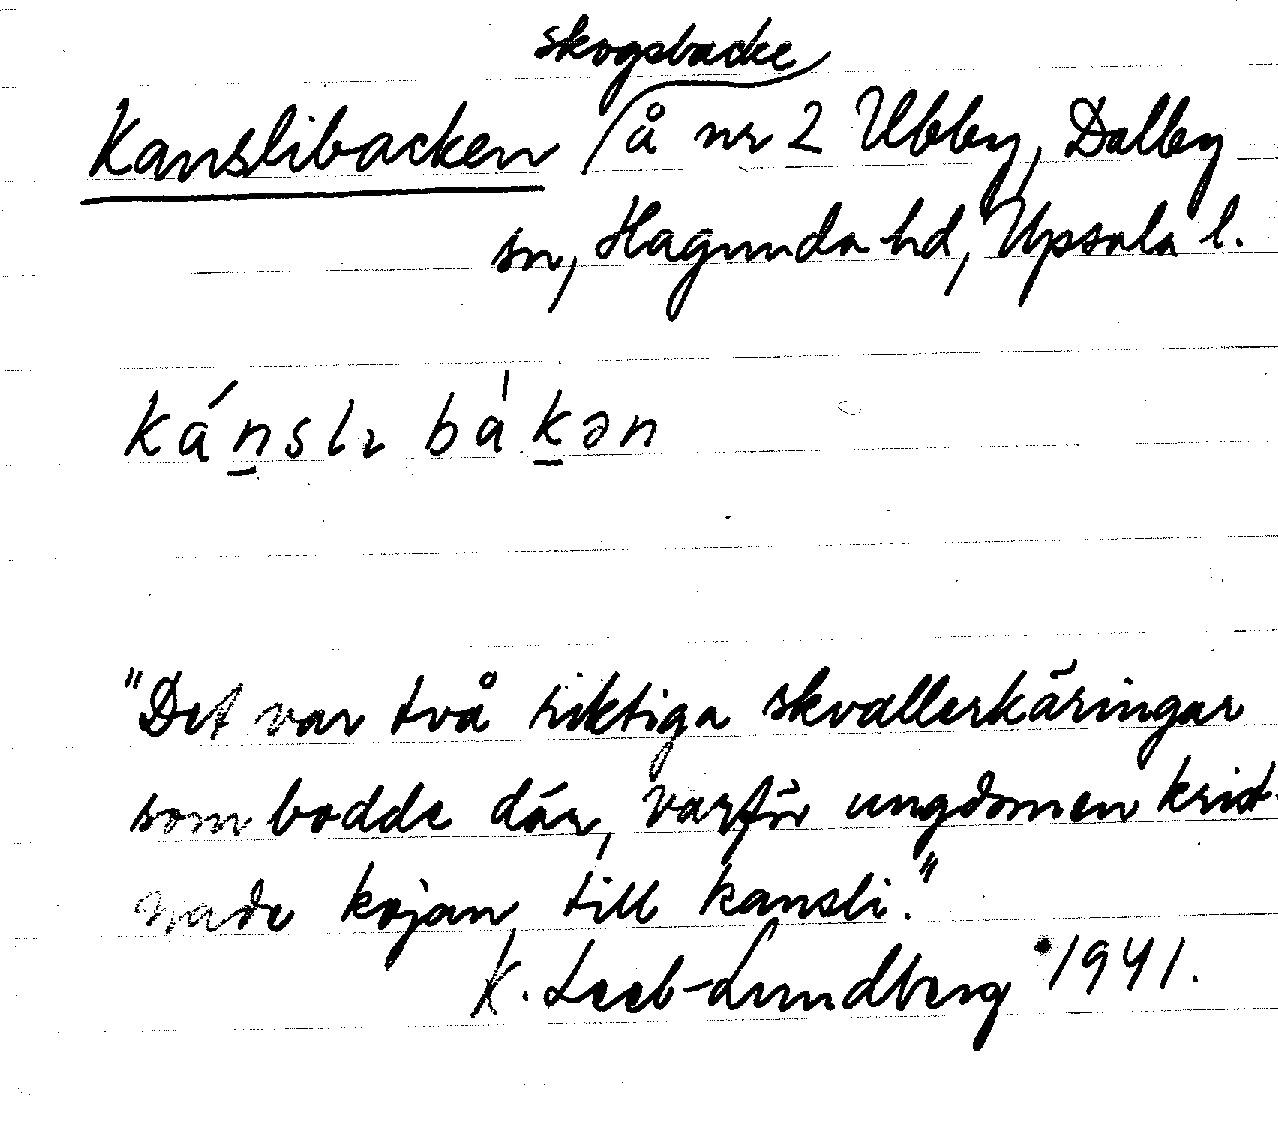 skogsbacke
Kanslibacken å nr 2 Ubby, Dalby
sn, Hagunda hd, Upsala l.
kánslɩ bàkən
"Det var två riktiga skvallerkäringar
som bodde där, varför ungdomen krist-
nade kojan till kansli."
K. Leeb-Lundberg 1941.